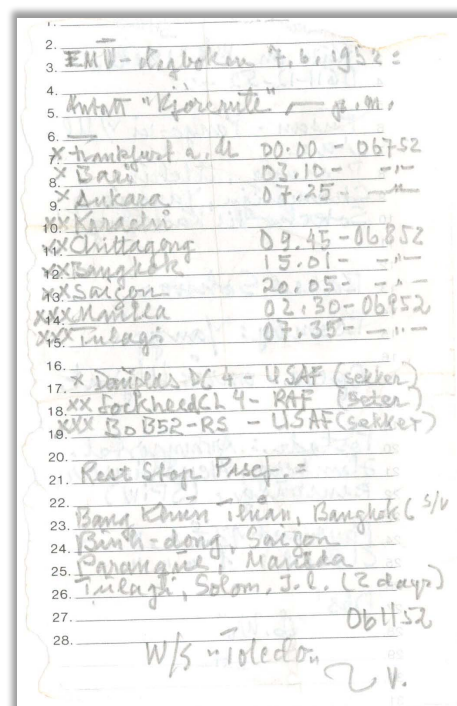 1.
2.
EMV-dagboken 7.6.1952 =
3.
4.
Antatt "Kjörerute" — g.m.
5.
6.
7. x Frankfurt a. M 00.00 - 06752
8. x Bari 03.10 - -"-
9. x Ankara 07.25 - -"-
10. xx Karachi
11. xx Chittagong 09.45 - 06852
12. xx Bangkok 15.01 - -"-
13. xx Saigon 20.05 - -"-
14. xxx Manilla 02.30 - 06952
15. xxx Tulagi 07.35 - -"-
16.
17. x Douglas DC 4 - USAF (sekker)
18. xx Lockheed CL 4 - RAF (seter)
19. xxx BoB52-RS - USAF (sekker)
20.
21. Rest Stop =
22.
23. Bang Khun, Bangkok (S/V
24. Binh-dong, Saigon
25. Paranque, Manilda
26. Tulagi, Solom. I.l. (2 days)
27. 061152
28.
W/S "Toledo"
V.